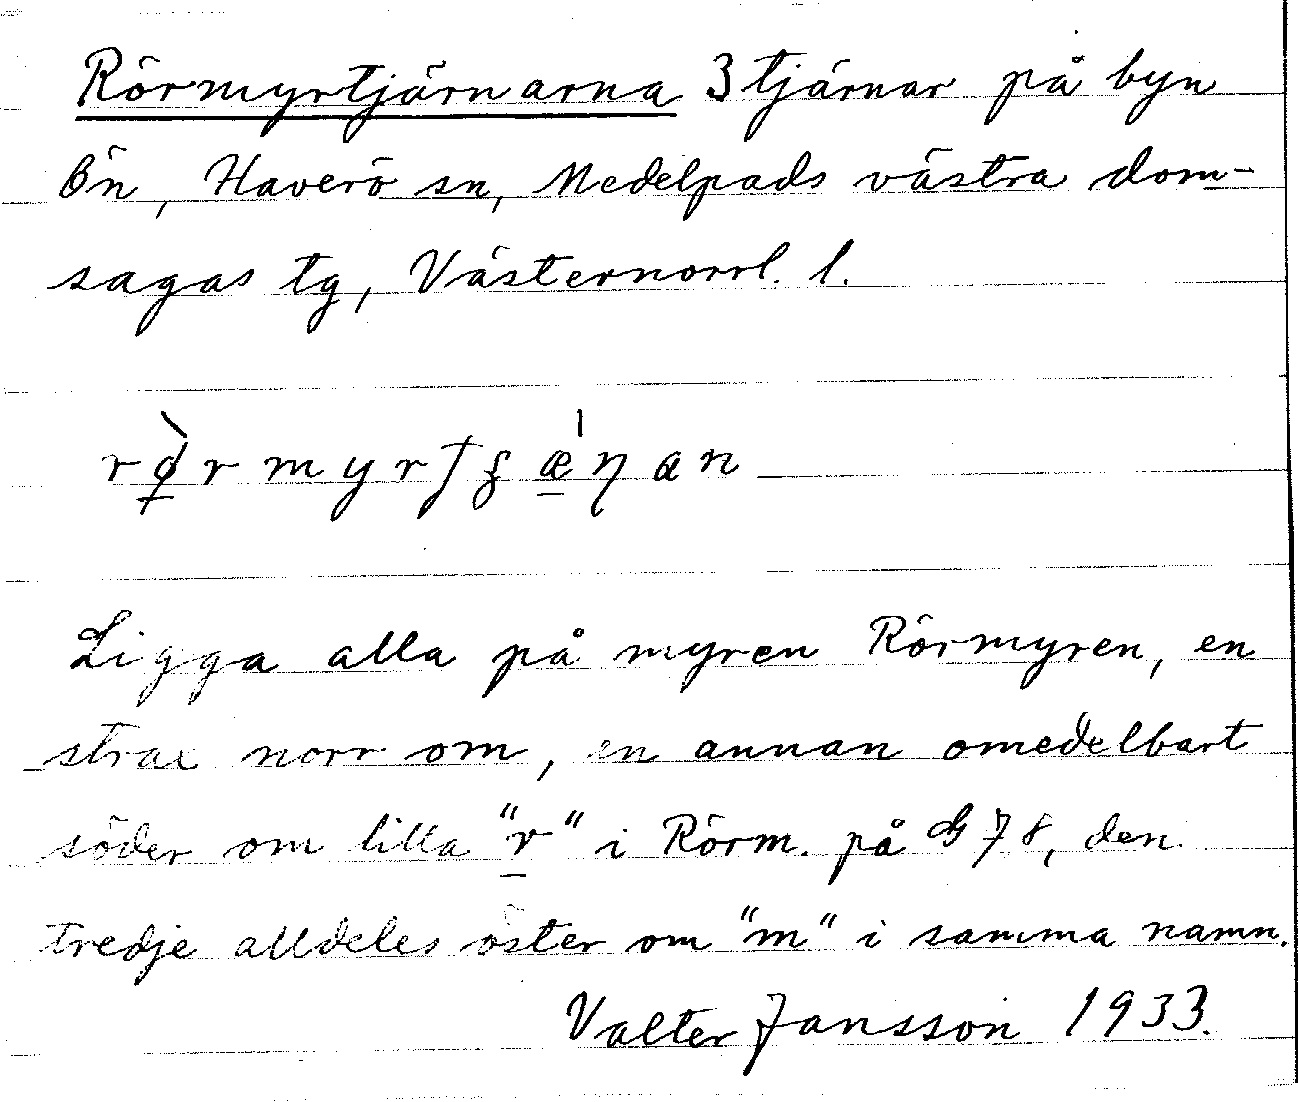 Rörmyrtjärnarna 3 tjärnar på byn
Ön, Haverö sn, Medelpads västra dom-
sagas tg, Västernorrl. l.
Ligga alla på myren Rörmyren, en
strax norr om, en annan omedelbart
söder om lilla "r" i Rörm. på 78, den
tredje alldeles öster om "m" i samma namn.
Valter Jansson 1933.